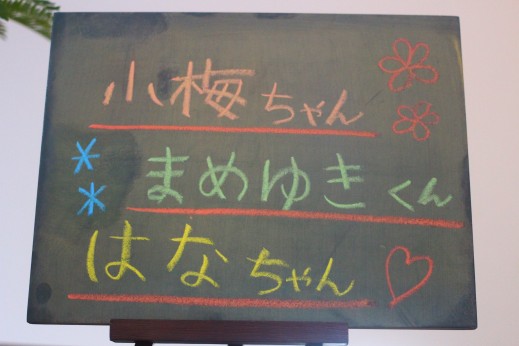 小梅ちゃん
まめゆきくん
はなちゃん